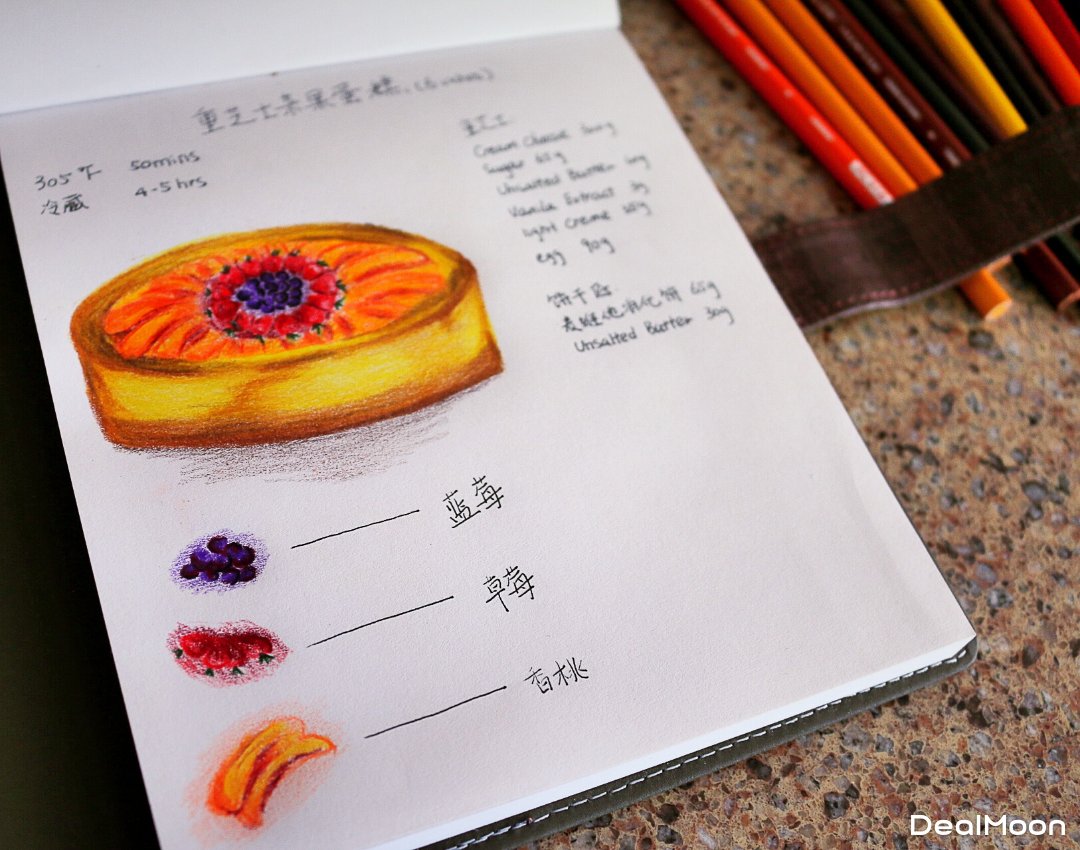 重芝士水果蛋糕 (6 inches)
305℉ 50mins
冷藏 4-5 hrs
重芝士:
Cream Cheese
Sugar 65g
Unsalted Butter
Vanilla Extract
light Creme
egg 90g
饼干底:
麦维他消化饼 65g
Unsalted Butter 30g
蓝莓
草莓
香桃
DealMoon